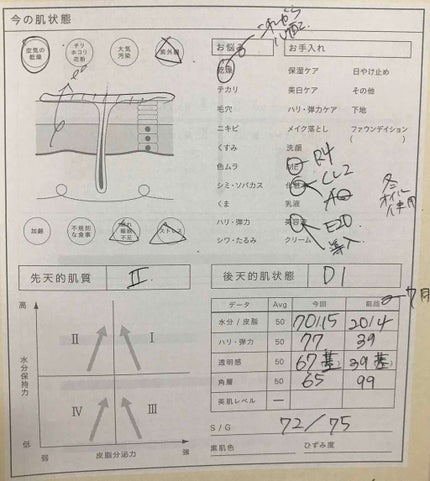 今の肌状態
空気の乾燥
チリ ホコリ 花粉
大気汚染
紫外線
お悩み
お手入れ
乾燥
保湿ケア 日やけ止め
テカリ
美白ケア その他
毛穴
ハリ・弾力ケア 下地
ニキビ
メイク落とし ファウンデイション
くすみ
洗顔 ( )
色ムラ
R4
シミ・ソバカス
CL2
くま
乳液
AQ
ハリ・弾力
EIO
シワ・たるみ
クリーム
導入
加齢
不規則な食事
睡眠不足
ストレス
先天的肌質 II
後天的肌状態 D1
7月
高
水分保持力
低
II I
IV III
弱 皮脂分泌力 強
データ Avg 今回 前回
水分/皮脂 50 70/15 20/4
ハリ・弾力 50 77 39
透明感 50 67 基 39 基
角層 50 65 99
美肌レベル —
S/G 72/75
素肌色 ひずみ度